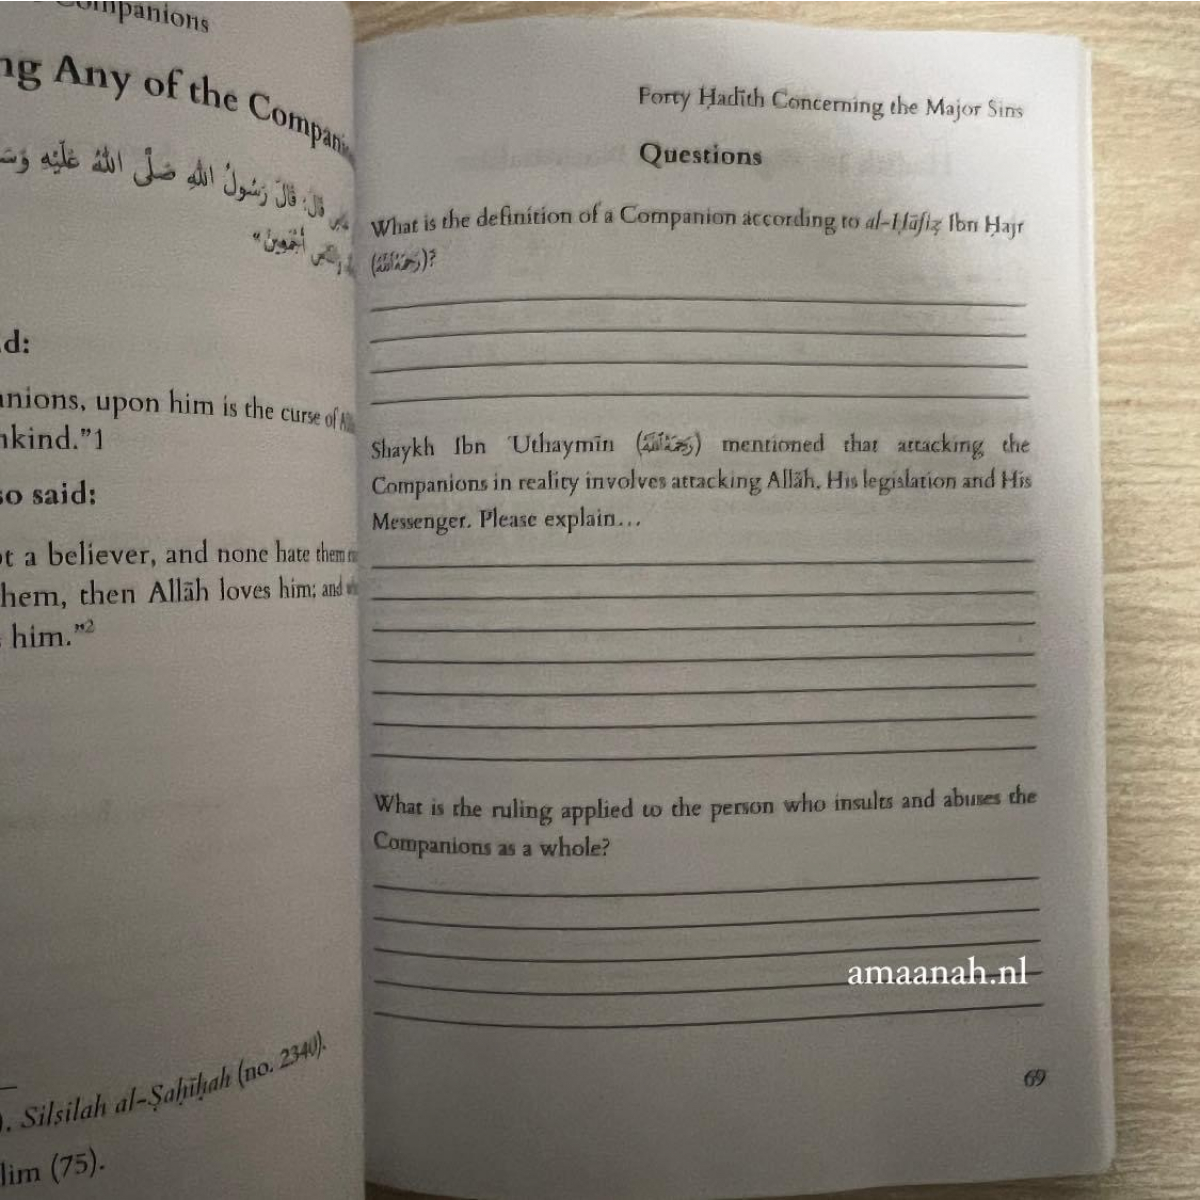 Companions
ng Any of the Compani
قَالَ: قَالَ رَسُولُ اللهِ صَلَّى اللهُ عَلَيْهِ وَسَ
أَجْمَعِينَ"
d:
nions, upon him is the curse of
kind."1
so said:
ot a believer, and none hate them
hem, then Allāh loves him; and
him."2
Silsilah al-Ṣaḥīḥah (no. 2340).
lim (75).
Forty Ḥadīth Concerning the Major Sins
Questions
What is the definition of a Companion according to al-Ḥāfiẓ Ibn Ḥajr
(رَحِمَهُ اللَّهُ)?
Shaykh Ibn ʿUthaymīn (رَحِمَهُ اللَّهُ) mentioned that attacking the
Companions in reality involves attacking Allāh, His legislation and His
Messenger. Please explain...
What is the ruling applied to the person who insults and abuses the
Companions as a whole?
amaanah.nl
69